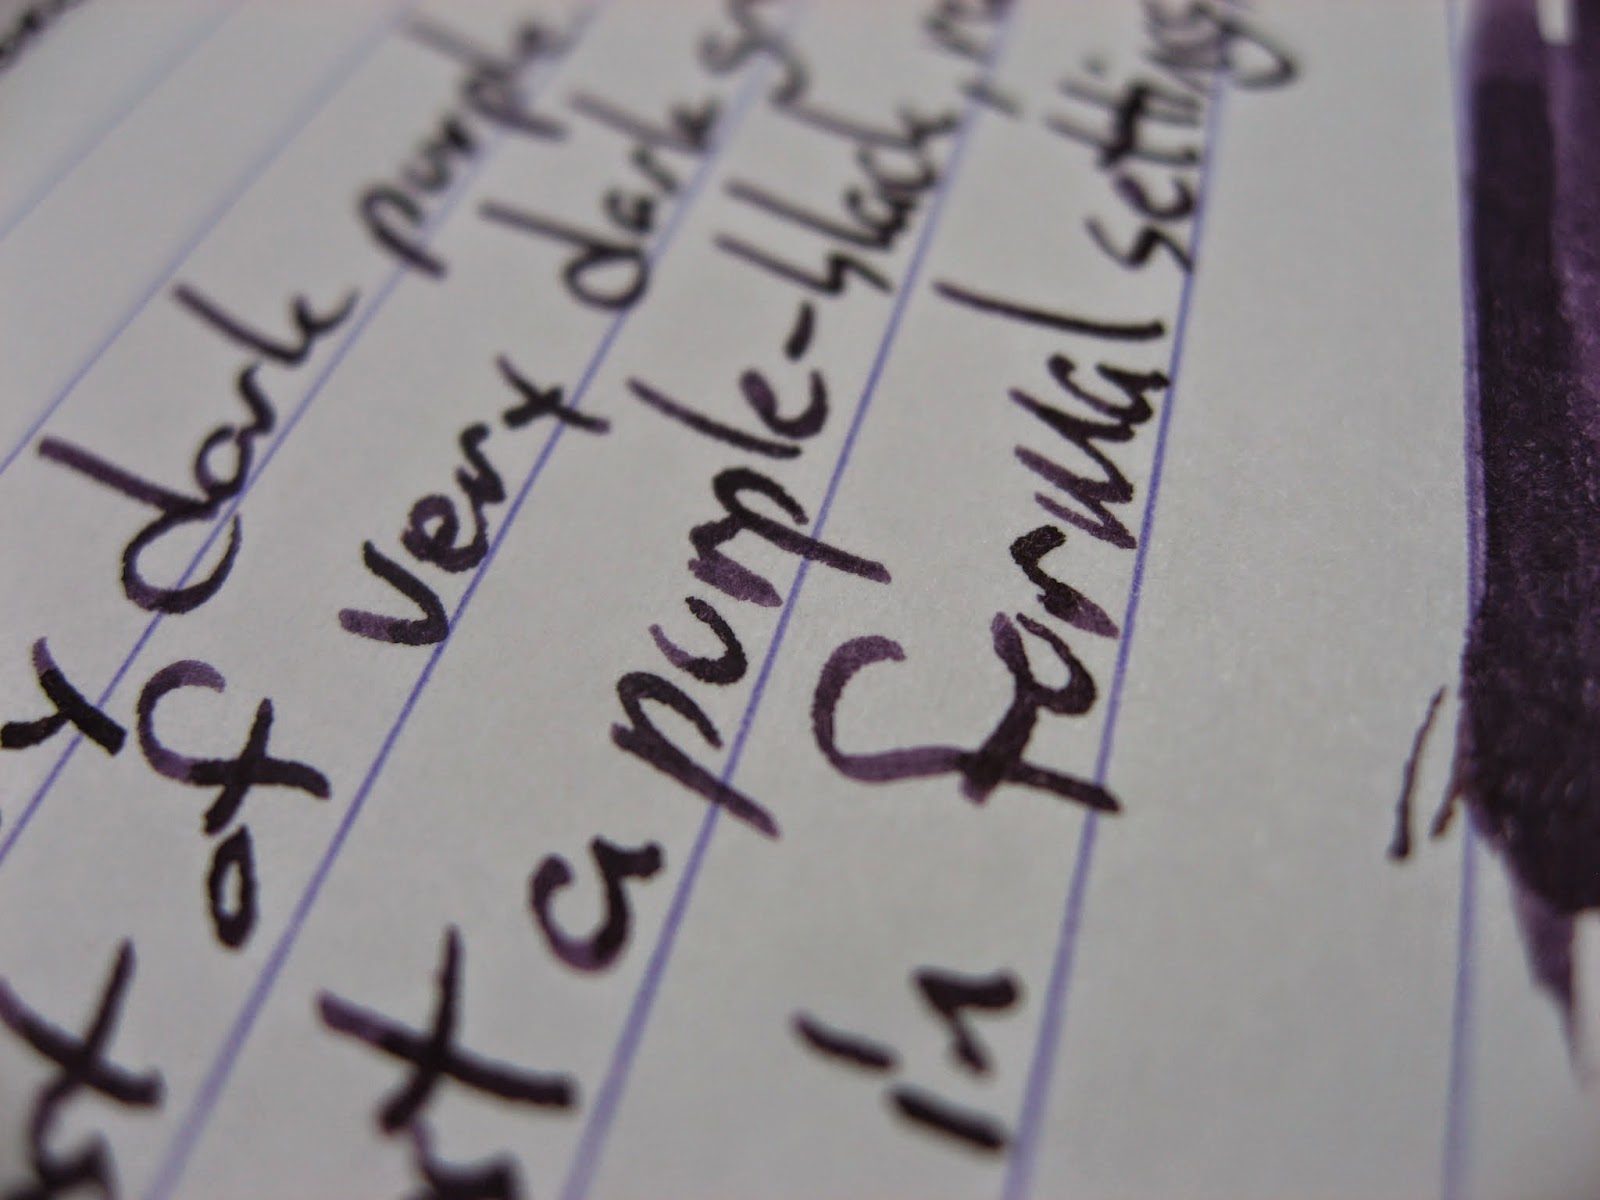 dark purple
of very dark
a purple-black,
in formal settings